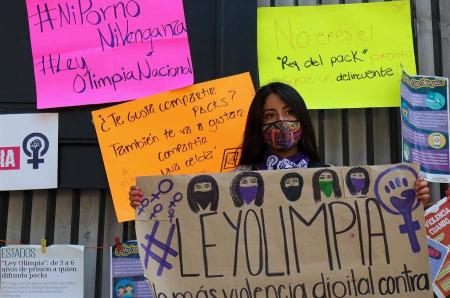 #NiPorno
NiVenganza
#Ley
OlimpiaNacional
No eres el
"Rey del pack"
eres un delincuente
¿Te Gusta compartir
PACKS?
También te va a gustar
compartir
celda
IA
ESTADOS
"Ley Olimpia": de 3 a
6 años de prisión a quien
difunda packs
#LEYOLIMPIA
más violencia digital contra
Violencia
CUANDO